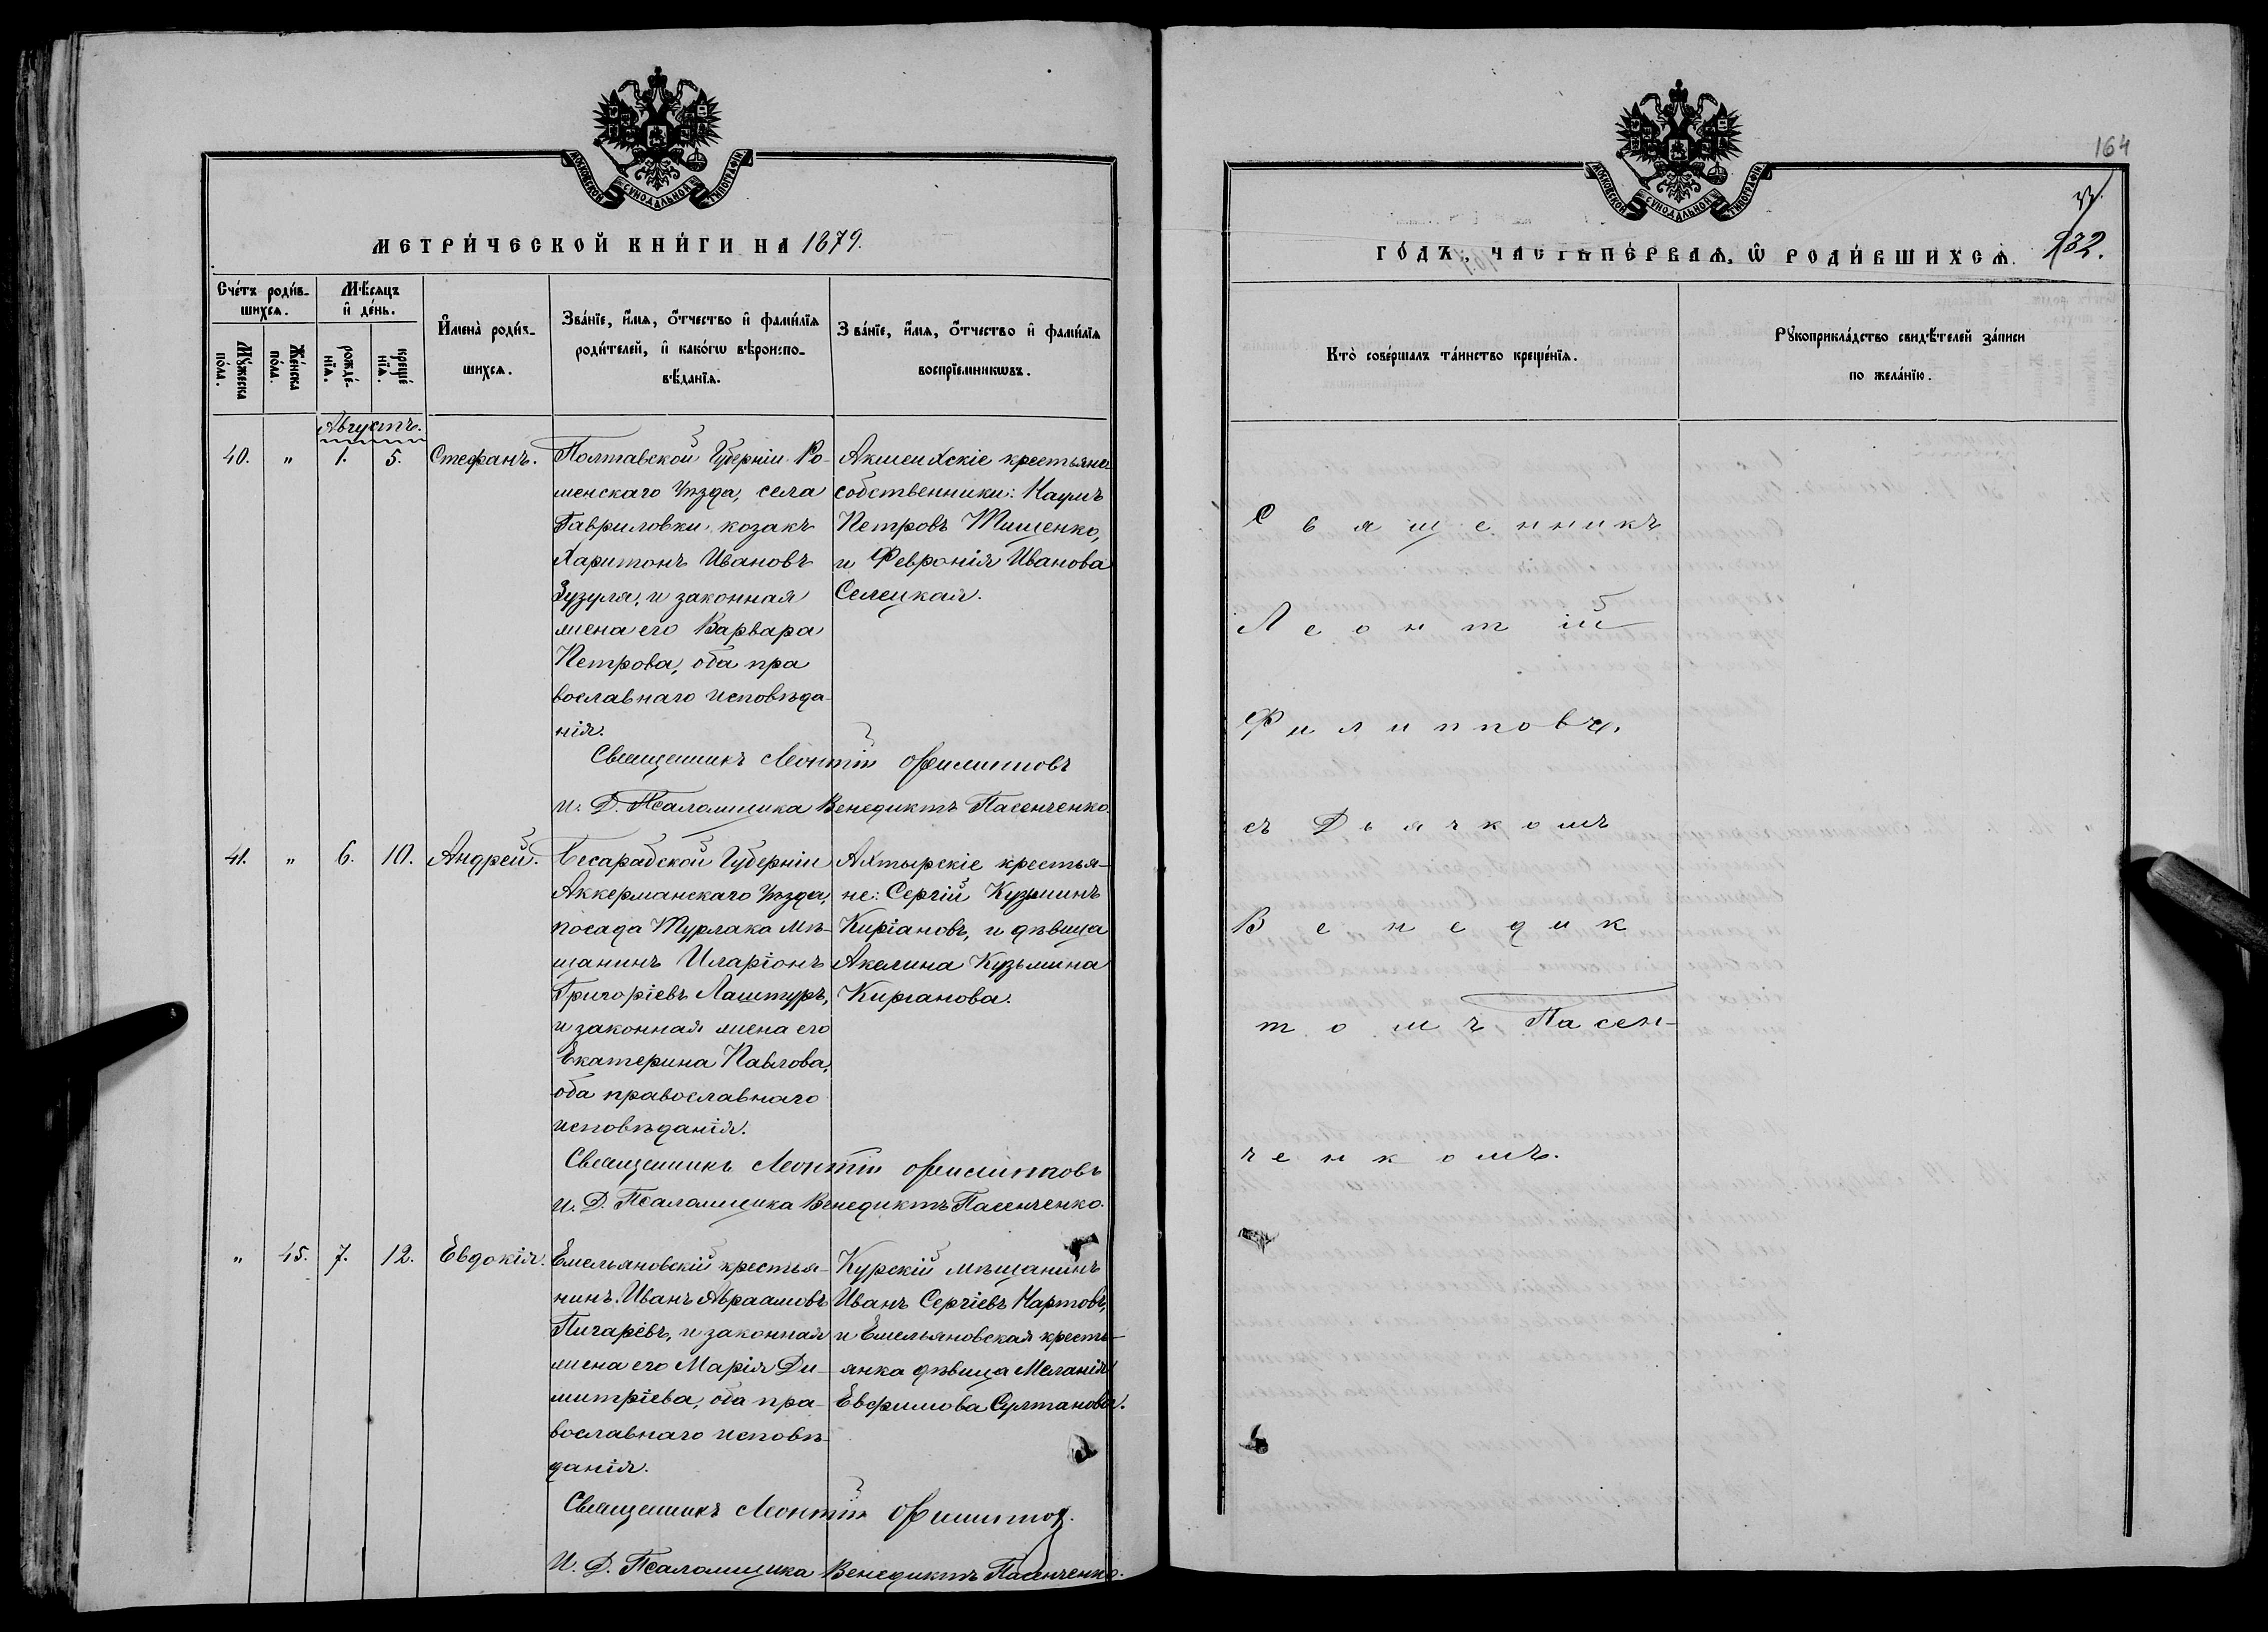 МОСКОВСКОЙ СѴНОДАЛЬНОЙ ТИПОГРАФІИ
МЕТРИ́ЧЕСКОЙ КНИ́ГИ НА 1879.
Сче́тъ роди́в-
шихсѧ.
Мꙋ́жеска по́ла.
Же́нска по́ла.
Мѣ́сѧцъ
и҆ де́нь.
рожде́-нїѧ.
креще́нїѧ.
И҆мена̀ роди́в-
шихсѧ.
Зва́нїе, и҆́мѧ, ѻ҆́тчество и҆ фами́лїѧ
роди́телей, и҆ како́гѡ вѣроиспо-
вѣ́данїѧ.
Зва́нїе, и҆́мѧ, ѻ҆́тчество и҆ фами́лїѧ
воспрїемникѡвъ.
Августъ.
40. „ 1. 5. Стефанъ.
Полтавской Губерніи Ро-
менскаго Уѣзда, села
Гавриловки козакъ
Харитонъ Ивановъ
Зузуля, и законная
жена его Варвара
Петрова, оба пра
вославнаго исповѣда-
нія.
крестьяне
собственники: Наумъ
Петровъ Тищенко,
и Февронія Иванова
Селецкая.
Священникъ Леонтій Филипповъ
И. Д. Псаломщика Венедиктъ Пасенченко.
41. „ 6. 10. Андрей.
Бесарабской Губерніи
Аккерманскаго Уѣзда,
посада Турлака мѣ-
щанинъ Иларіонъ
Григоріевъ Лаштуръ,
и законная жена его
Екатерина Павлова,
оба православнаго
исповѣданія.
Ахтырскіе крестья-
не: Сергій Кузминъ
Киріановъ, и дѣвица
Акелина Кузьмина
Кирианова.
Священникъ Леонтій Филипповъ
И. Д. Псаломщика Венедиктъ Пасенченко.
„ 45. 7. 12. Евдокія.
Емельяновскій крестья-
нинъ Иванъ Авраамовъ
Пичаревъ, и законная
жена его Марія Ди-
митріева, оба пра-
вославнаго исповѣ-
данія.
Курскій мѣщанинъ
Иванъ Сергіевъ Нартовъ,
и Емельяновская кресть-
янка дѣвица Меланія
Евфимова Султанова.
Священникъ Леонтій Филиппов.
И. Д. Псаломщика Венедиктъ Пасенченко.
164
МОСКОВСКОЙ СѴНОДАЛЬНОЙ ТИПОГРАФІИ
ГО́ДЪ, ЧАСТЬ ПЕ́РВАѦ, Ѡ҆ РОДИ́ВШИХСѦ. 132.
Кто̀ соверша́лъ та́инство креще́нїѧ.
Рꙋкоприкла́дство свидѣ́телей за́писи
по жела́нїю.
Священникъ
Леонтій
Филипповъ.
съ Дьячкомъ
Венедик
томъ Пасен-
ченкомъ.